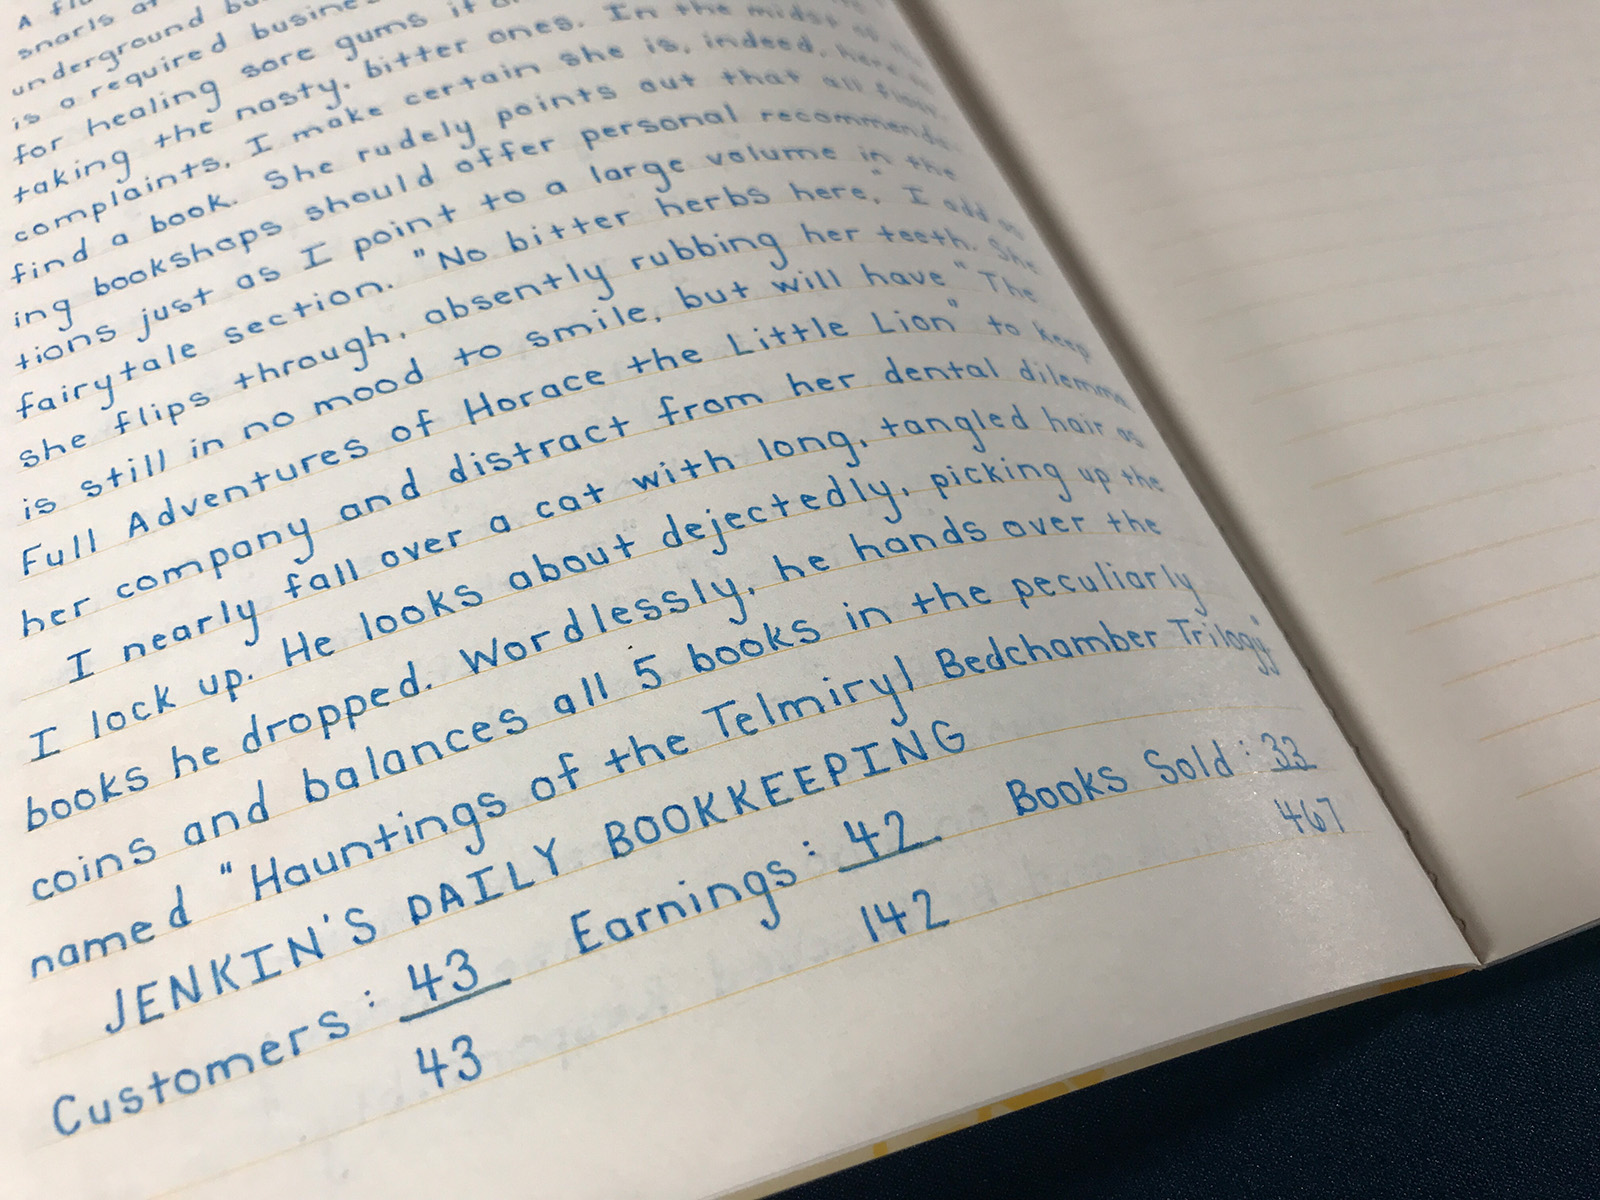 A
snarls at
underground
is a required business
for healing sore gums it
taking the nasty, bitter ones. In the midst of
complaints, I make certain she is, indeed, here
find a book. She rudely points out that all
ing bookshops should offer personal recommenda
tions just as I point to a large volume in the
fairytale section. "No bitter herbs here," I add as
she flips through, absently rubbing her teeth. She
is still in no mood to smile, but will have "The
Full Adventures of Horace the Little Lion" to keep
her company and distract from her dental dilemma
I nearly fall over a cat with long, tangled hair as
I lock up. He looks about dejectedly, picking up the
books he dropped. Wordlessly, he hands over the
coins and balances all 5 books in the peculiarly
named "Hauntings of the Telmiryl Bedchamber Trilogy"
JENKIN'S DAILY BOOKKEEPING
Customers: 43 Earnings: 42 Books Sold: 33
43 142 467